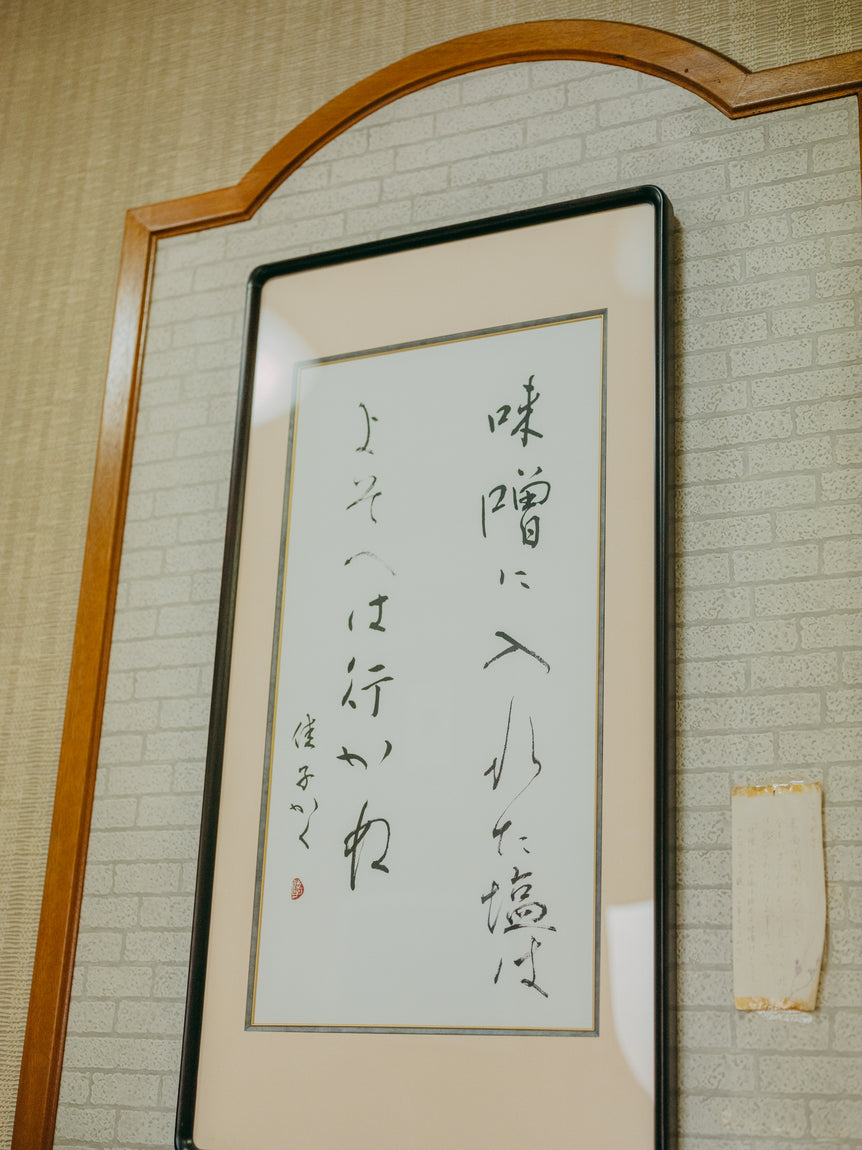 味噌に入れた塩は
よそへは行かぬ
佳子かく